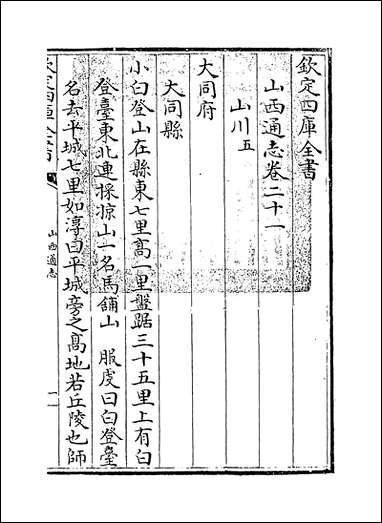 欽定四庫全書
山西通志卷二十一
山川五
大同府
大同縣
小白登山在縣東七里髙一里盤踞三十五里上有白
登臺東北連採凉山一名馬鋪山 服虔曰白登臺
名去平城七里如淳曰平城旁之髙地若丘陵也師
欽定四庫全書
山西通志
一